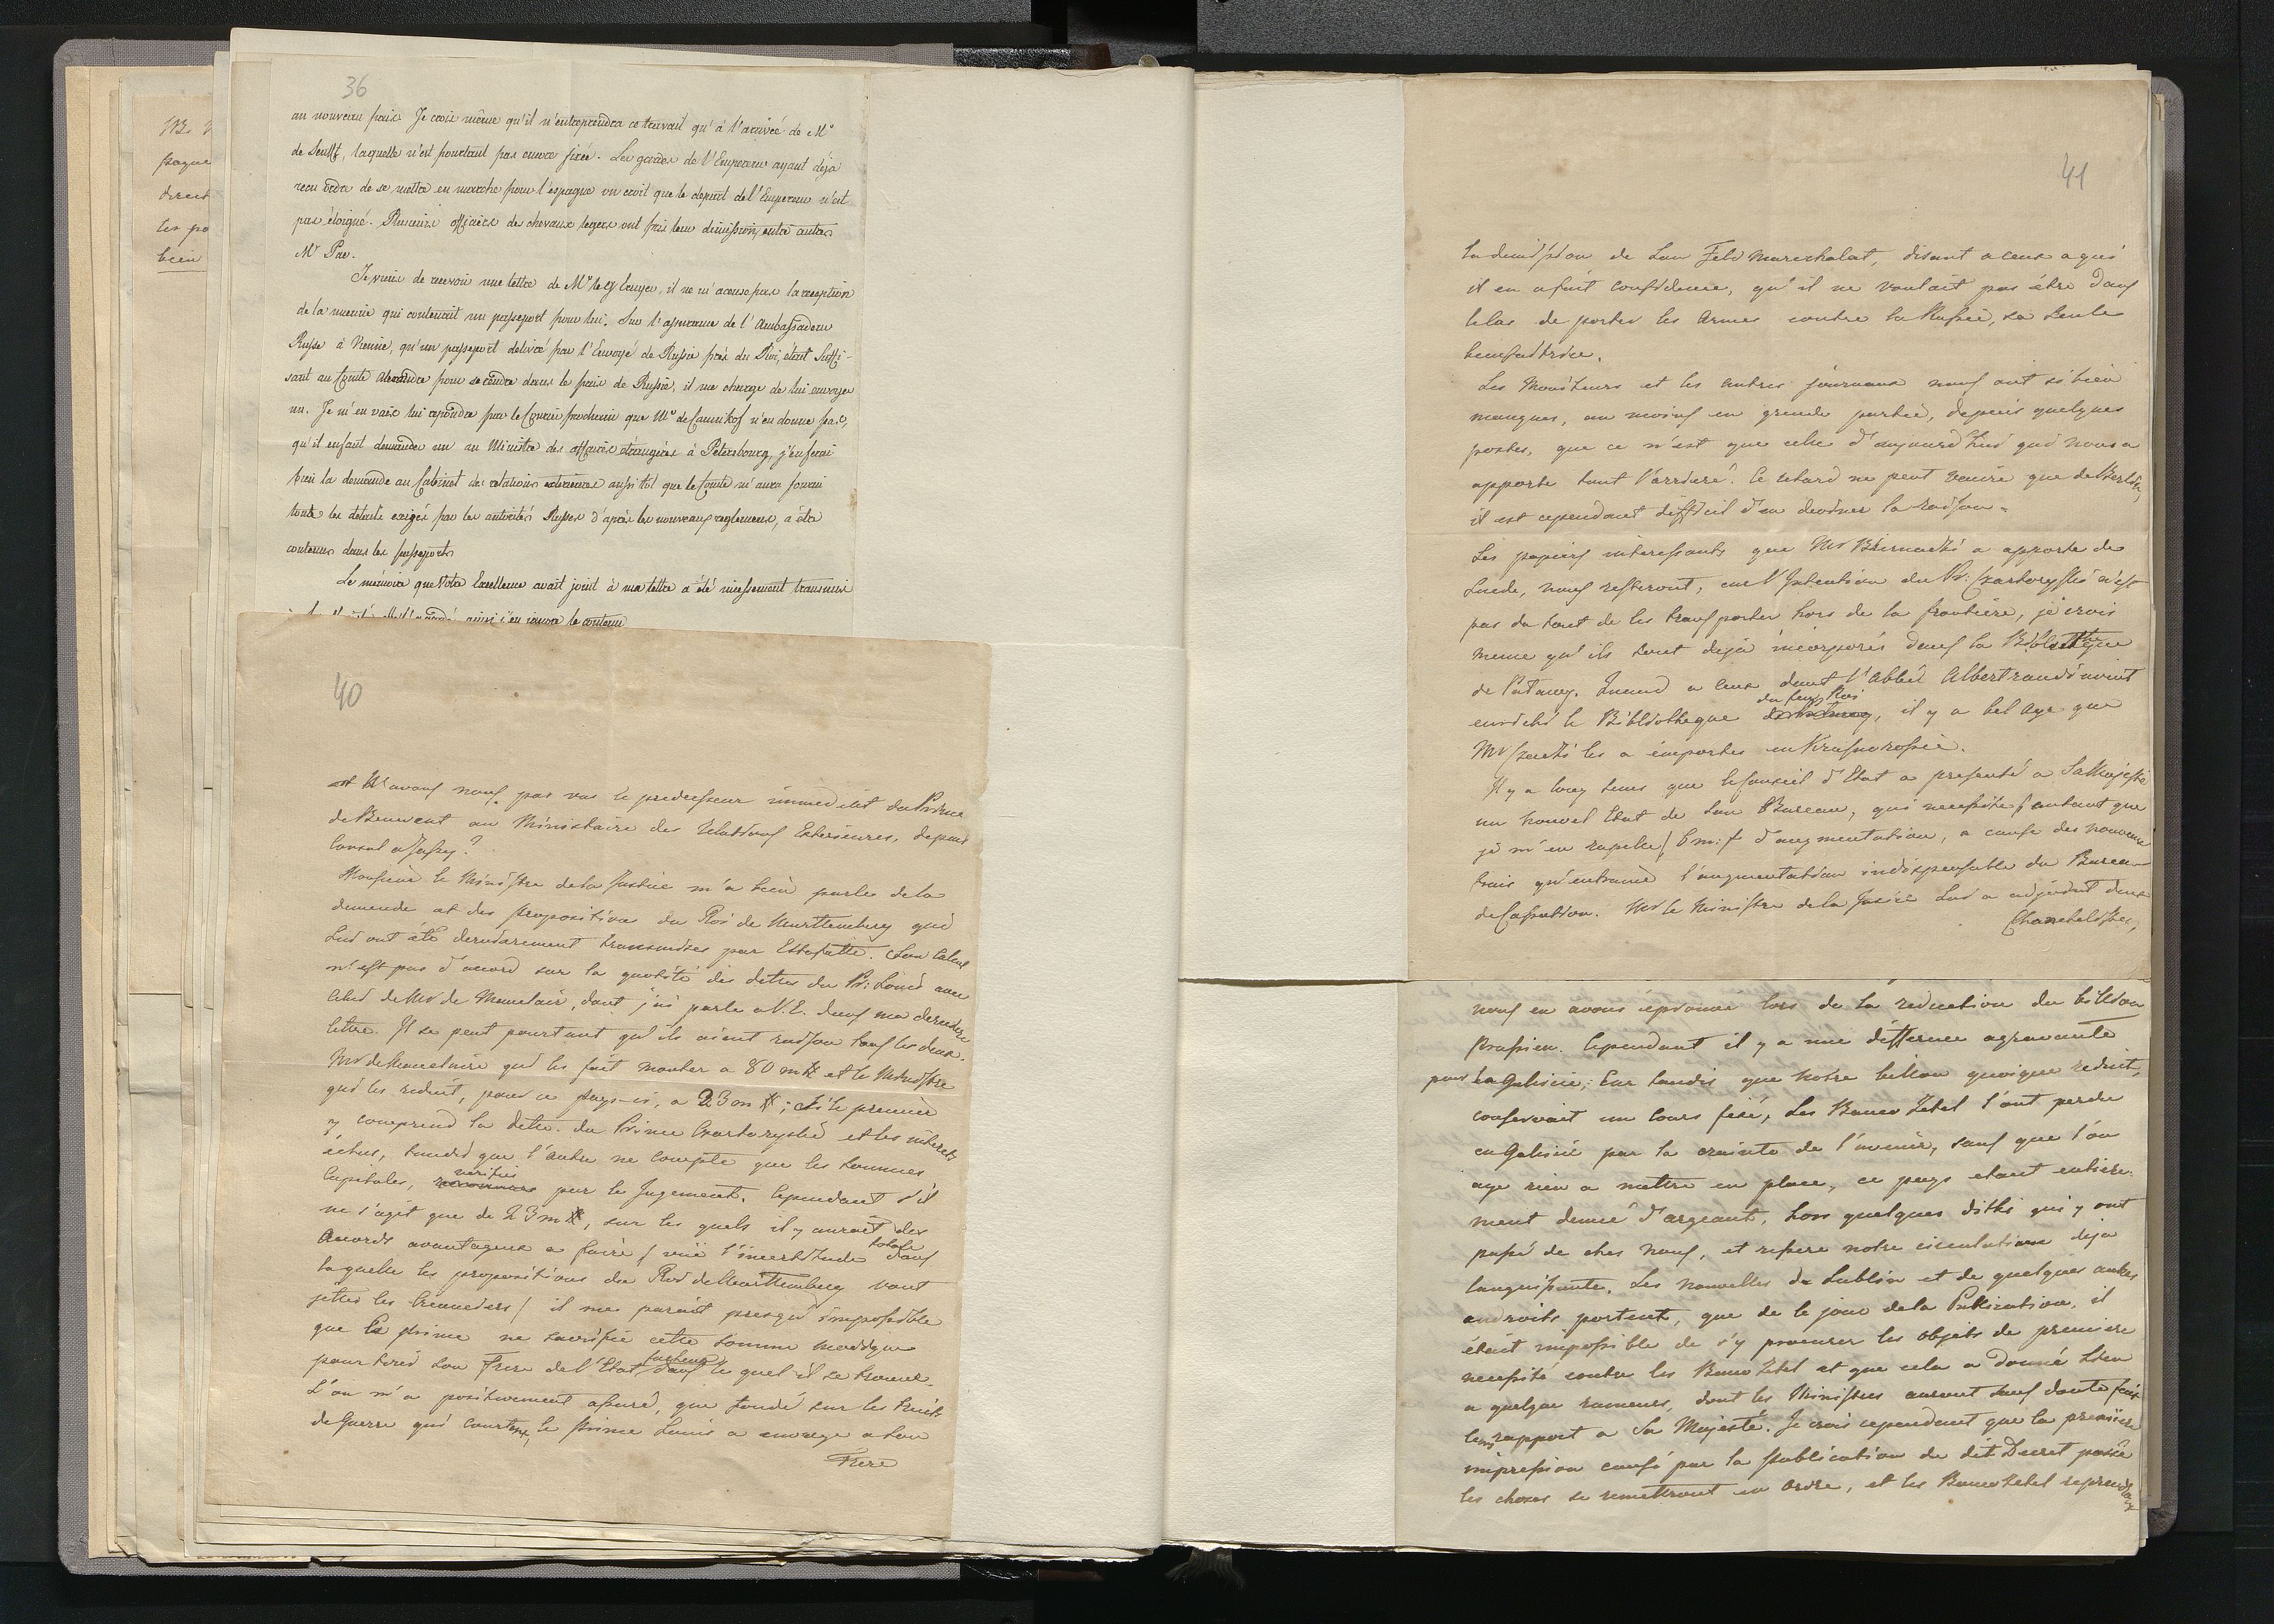 36
au nouveau païs. Je crois même qu'il n'entreprendra ce travail qu'à l'arrivée de Mr
de Senfft, laquelle n'est pourtant pas encore fixée. Les gardes de l'Empereur ayant déja
recu ordre de se mettre en marche pour l'espagne on croit que le depart de l'Empereur n'est
pas éloigné. Plusieurs officiers de chevaux legers ont pris leur démission, entre autres
Mr Pac.
Je viens de recevoir une lettre de Mr le, il ne m'acuse pas la reception
de la mienne qui contenait un passeport pour lui. Sur l'assurance de l'Ambassadeur
Russe à Vienne, qu'un passeport delivré par l'Envoyé de Russie près du Roi, étant suffi-
sant au Comte Alexandre pour se rendre dans le païs de Russie, il me charge de lui envoyer
un. Je m'en vais lui repondre par le Courier prochain que Mr de Cannikof n'en donne pas,
qu'il en faut demander un au Ministre des affaires étrangères à Petersbourg, j'en ferai
bien la demande au Cabinet des relations exterieures aussi tôt que le Comte m'aura fourni
touts les details exigés par les autorités Russes d'après les nouveaux reglemens, a être
contenus dans les passeports
Le mémoire que Votre Excellence avait joint à ma lettre a été incessament transmis
ainsi j'en ignore le contenu
40
et N'avons nous pas vu le predecesseur immediat du Prince
de Benevent au Ministaire des Relations Exterieures, depuis
Consul a Jassy?
Monsieur le Ministre de la Justice m'a bien parlé de la
demande et des proposition du Roi de Wurttemberg qui
Lui ont été dernierement transmises par Estafette. Son Calcul
n'est pas d'acord sur la quotité des dettes du Pr: Louis avec
Celui de Mr de Mauclair, dont j'ai parlé a V.E. dans ma derniere
lettre. Il se peut pourtant qu'ils aient raison tous les deux.
Mr de Mauclaire qui les fait monter a 80 m# et le Ministre
qui les reduit, pour ce pays-ci, a 23 m #; Si le premier
y comprend la dette du Prince Czartoryski et les interets
échus, tandis que l'autre ne Compte que les sommes
Capitales, verifiés par le Jugement. Cependant s'il
ne s'agit que de 23 m #, sur les quels il y aurait des
Acords avantageux a faire / vuë l'incertitude totale dans
laquelle les propositions du Roi de Wurttemberg vont
jetter les Creanciers / il me parait presqu'impossible
que le prince ne sacrifie cette somme modique
pour tirer son Frere de l'Etat facheux dans le quel il se trouve.
L'on m'a positivement assuré, que fondé sur les bruits
de Guerre qui courent, le Prince Louis a envoyé a son
Frere
41
la demission de son Feld Marechalat, disant a ceux a qui
il en a fait confidence, qu'il ne voulait pas être dans
le Cas de porter les Armes contre la Russie, sa seule
bienfaitrice.
Les Moniteurs et les autres journaux nous ont si bien
manqués, au moins en grande partie, depuis quelques
postes, que ce n'est que celle d'aujourd'hui qui nous a
apporté tout l'arrieré. Ce retard ne peut venir que de Berlin,
il est cependant difficil d'en deviner la raison.
Les papiers interessants que Mr Biernacki a apporté de
Suede, nous resteront, car l'Intention du Pr: Czartoryski n'est
pas du tout de les transporter hors de la frontiere, je crois
meme qu'ils sont deja incorporés dans la Bibliotheque
de Pulawy. Quand a ceux dont l'Abbé Albertrandi avait
enrichi la Bibliotheque du feux Roi, il y a bel age que
Mr Czacki les a emportés en
Il y a long tems que le Conseil d'Etat a presenté a Sa Majesté
un nouvel Etat de son Bureau, qui necessite / autant que
je m'en rapelle / 6 m: f d'augmentation, a cause des nouveaux
frais qu'entraine l'augmentation indispensable du Bureau
de Cassation. Mr le Ministre de la Justice Lui a adjoint deux
Chancelistes,
nous en avons eprouvé lors de la reduction du billon
Prussien. Cependant il y a une différence agravante
pour la Galicie; Car tandis que notre billon quoique reduit,
conservait un cours fixé, Les Banco Zetel l'ont perdu
en Galicie par la crainte de l'avenir, sans que l'on
aye rien a mettre en place, ce pays etant entiere-
ment denué d'argeant, hors quelques ditki qui y ont
passé de chez nous, et resserré notre circulation deja
languissante. Les nouvelles de Lublin et de quelques autres
androits portent, que de le jour de la Publication, il
était impossible de s'y procurer les objets de premiere
necessité contre les Banco Zetel et que cela a donné Lieu
a quelque rumeurs, dont les Ministres auront sans doute fait
leur rapport a Sa Majesté. Je crois cependant que la premiere
impression causé par la publication du dit Decret passée
les choses se remettront en ordre, et les Banco Zetel reprendront